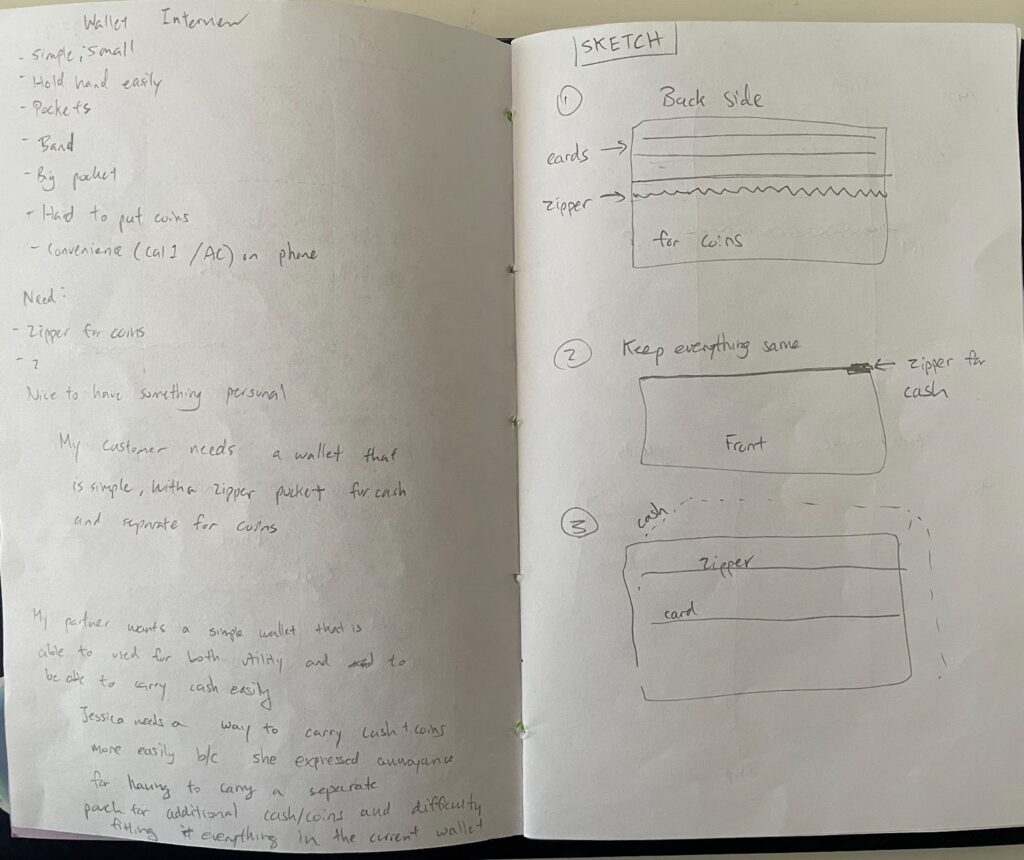 Wallet Interview
- simple, small
- Hold hand easily
- Pockets
- Band
- Big pocket
- Hard to put coins
- Convenience (Cal 1 /AC) on phone
Need:
- Zipper for coins
- 2
Nice to have something personal
My customer needs a wallet that
is simple, with a zipper pocket for cash
and separate for coins
My partner wants a simple wallet that is
able to used for both utility and to
be able to carry cash easily
Jessica needs a way to carry cash + coins
more easily b/c she expressed annoyance
for having to carry a separate
pouch for additional cash/coins and difficulty
fitting everything in the current wallet
SKETCH
1 Back side
cards →
zipper →
for coins
2 Keep everything same
← zipper for
cash
Front
3 cash
zipper
card